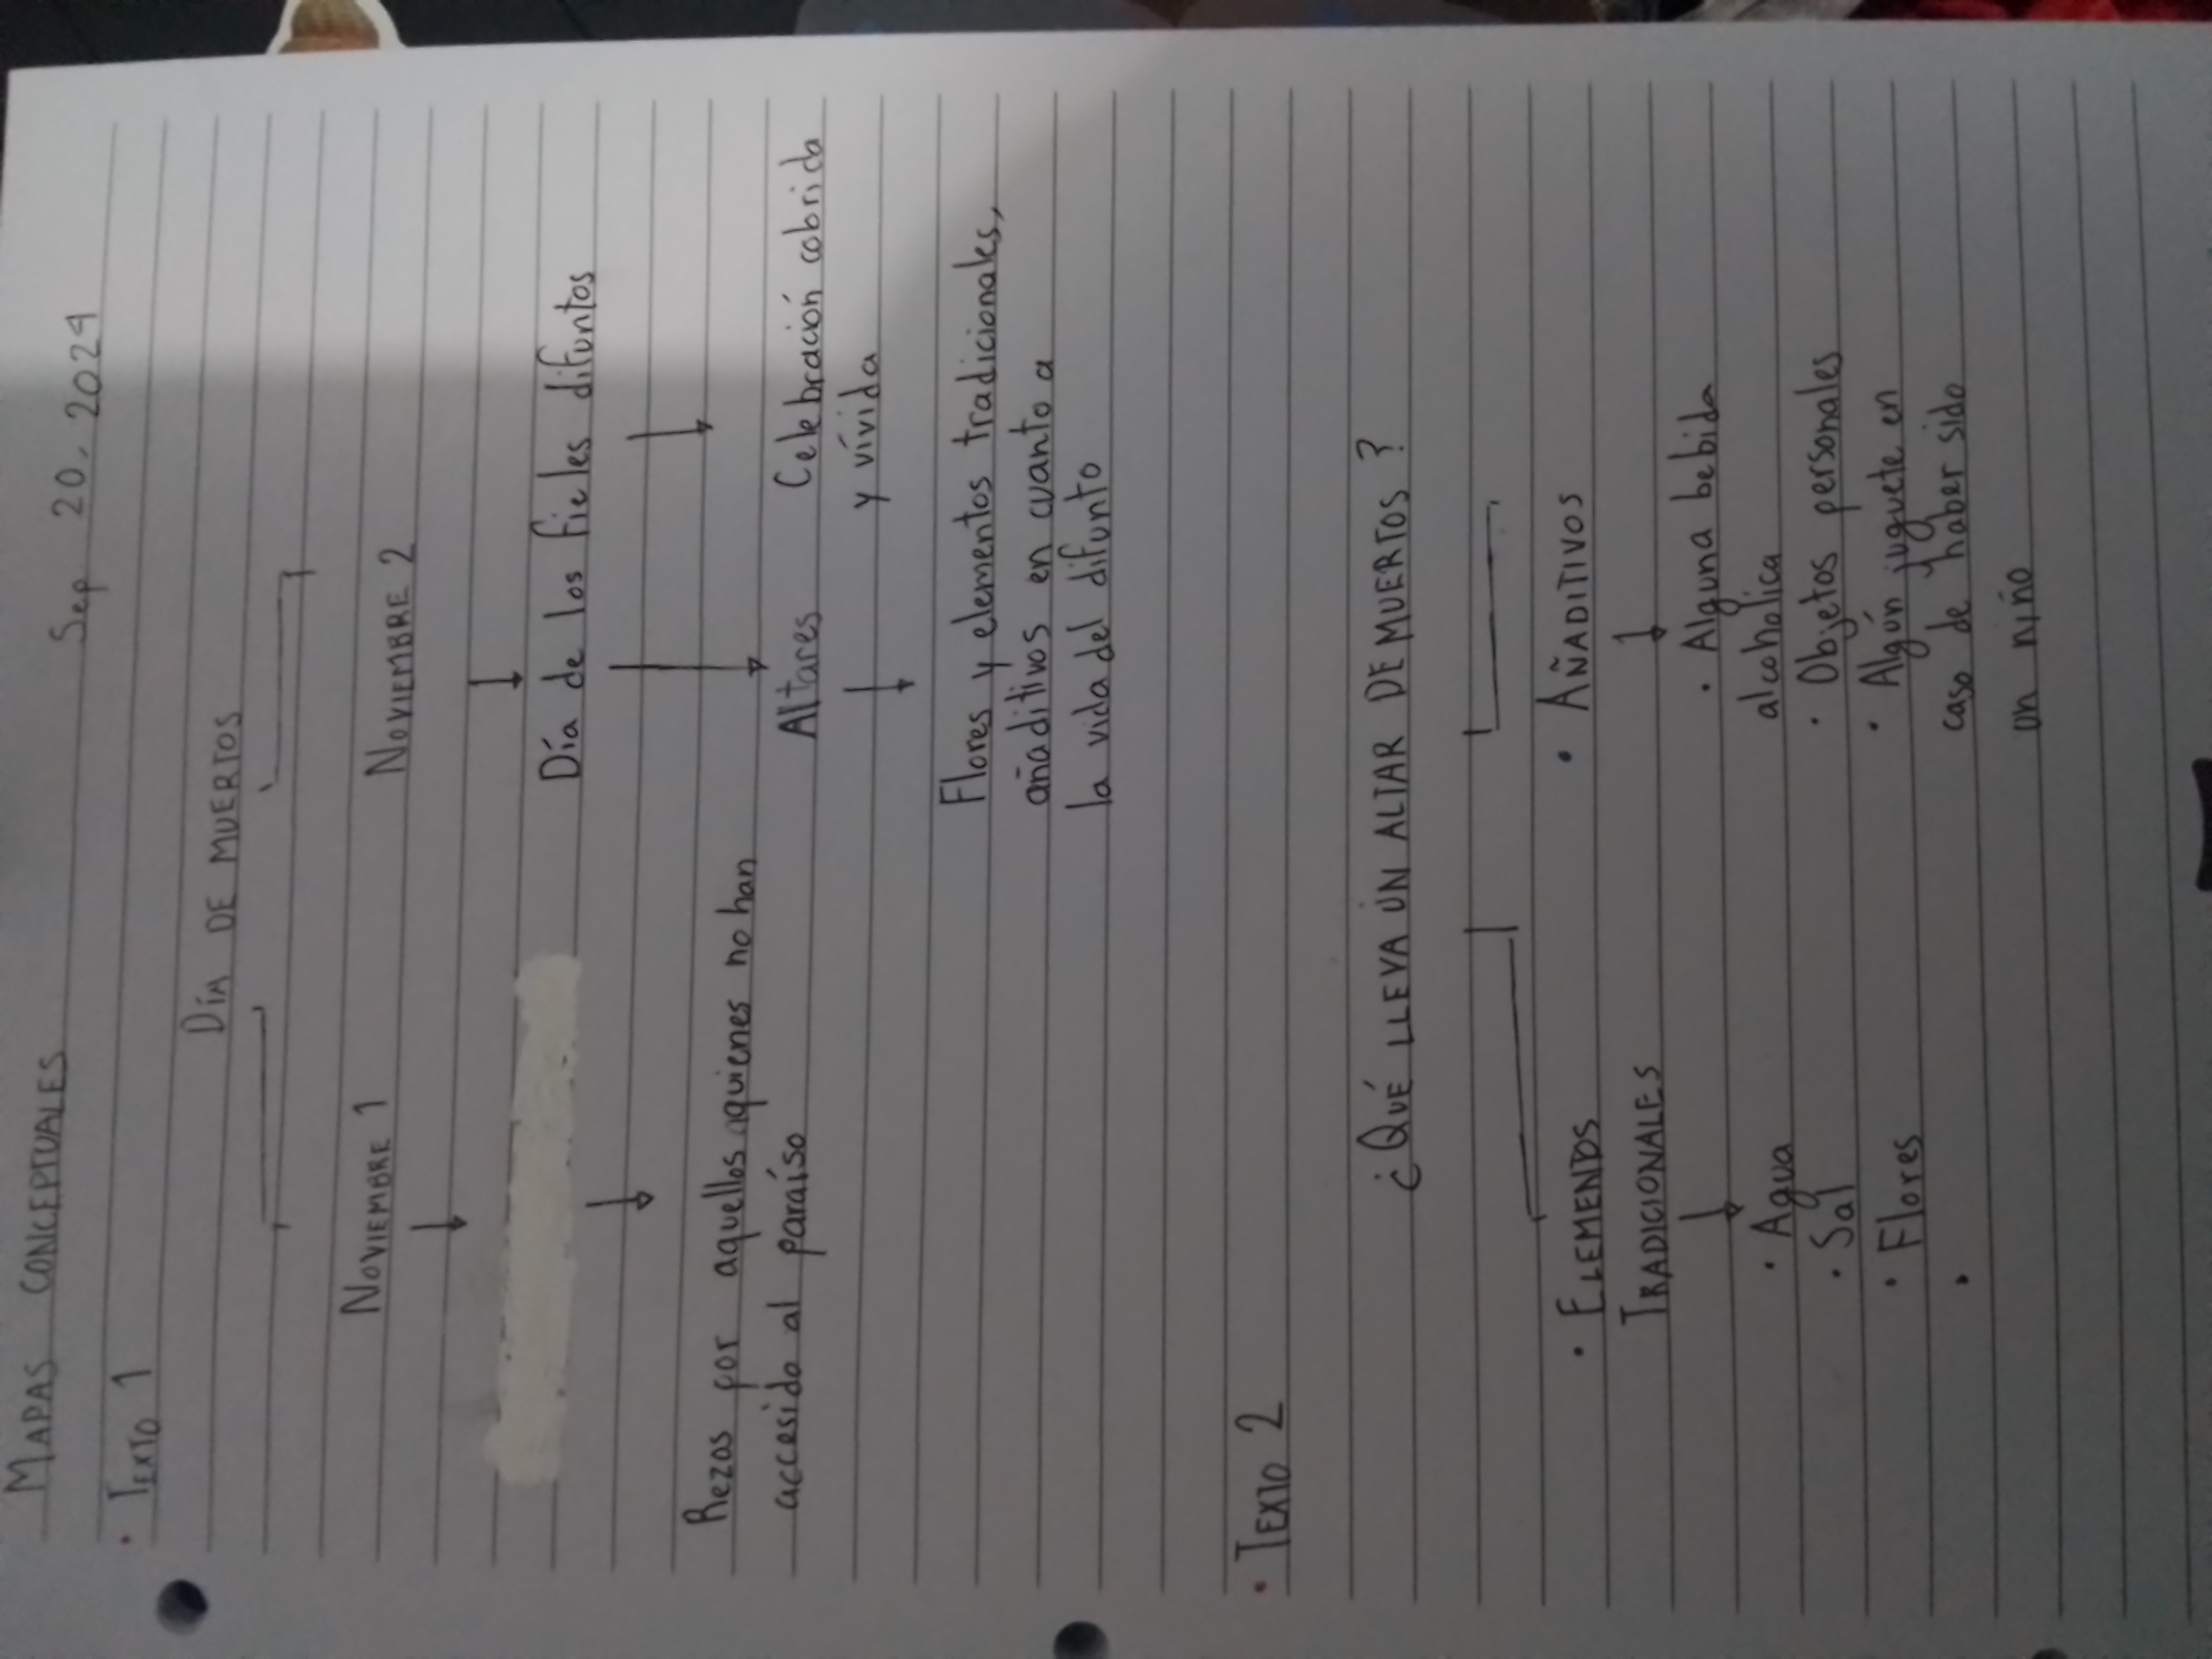 MAPAS CONCEPTUALES
Sep 20, 2024
• TEXTO 1
DÍA DE MUERTOS
NOVIEMBRE 1
NOVIEMBRE 2
Día de los fieles difuntos
Rezos por aquellos aquienes no han
accesido al paraíso
Altares
Celebración cobrida
y vívida
Flores y elementos tradicionales,
añaditivos en cuanto a
la vida del difunto
• TEXTO 2
¿QUÉ LLEVA UN ALTAR DE MUERTOS?
• ELEMENTOS
TRADICIONALES
• Agua
• Sal
• Flores
•
• AÑADITIVOS
• Alguna bebida
alcoholica
• Objetos personales
• Algún juguete en
caso de haber sido
un niño